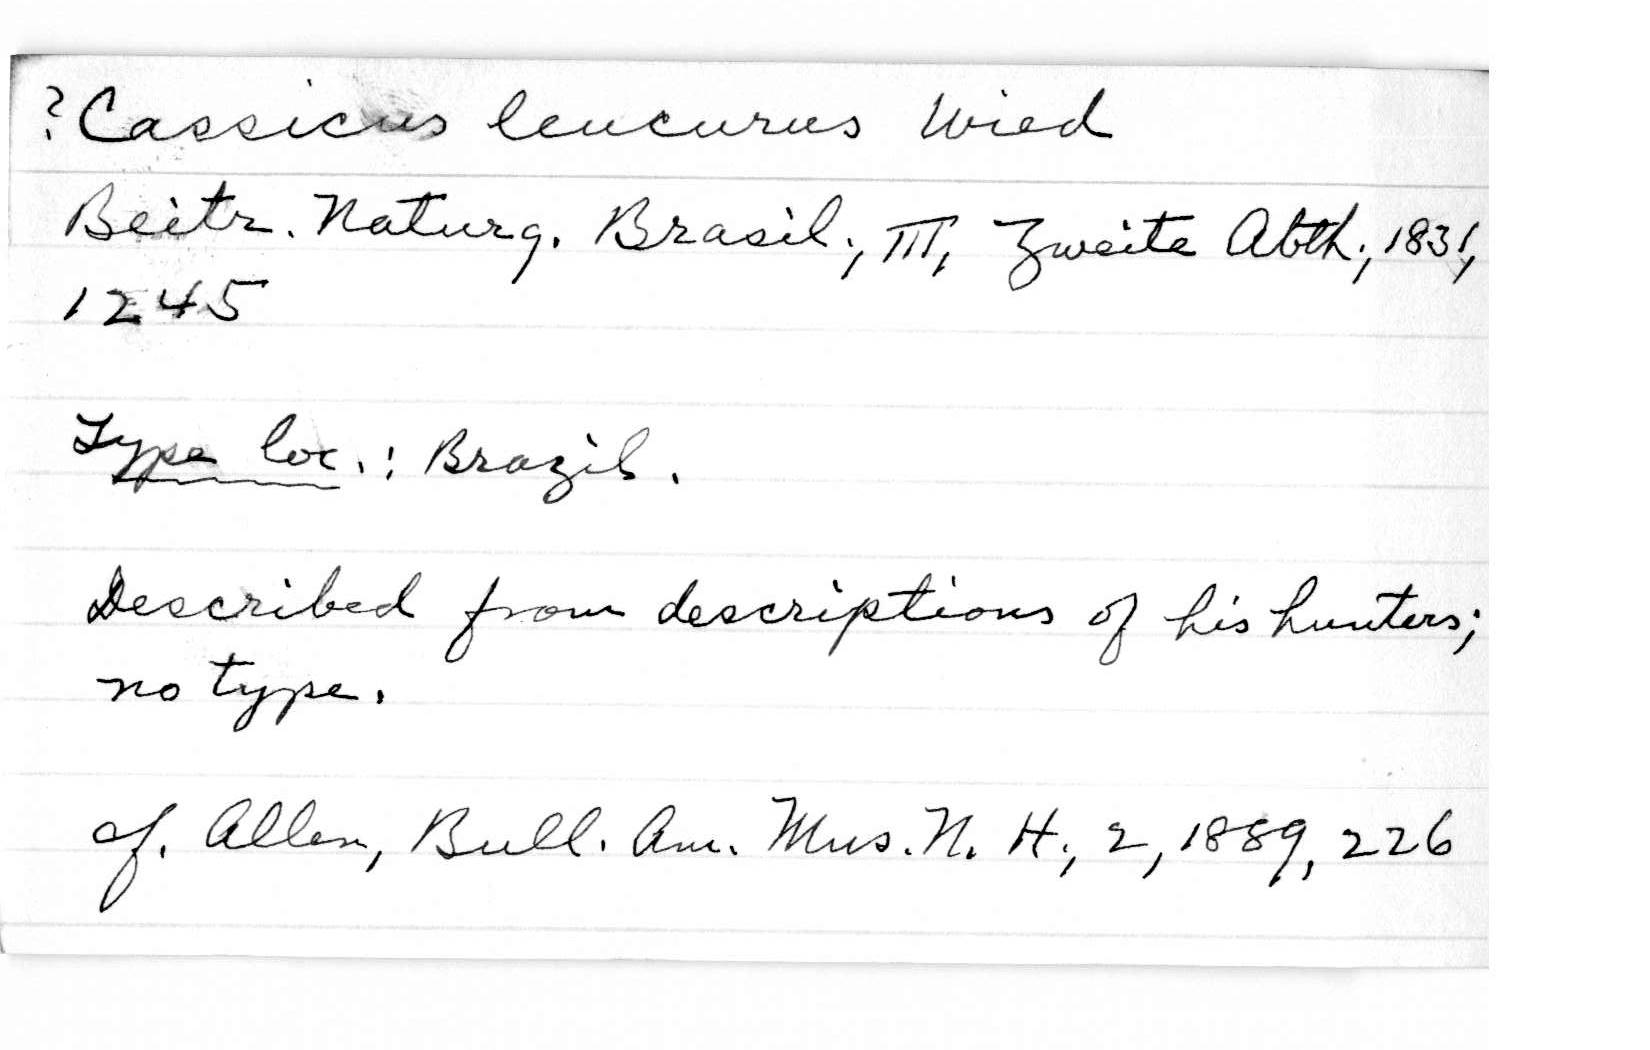 ?Cassicus leucurus Wied
Beitr. Naturg. Brasil., III, Zweite Abth., 1831,
1245
Type loc.: Brazil.
Described from descriptions of his hunters;
no type.
cf. Allen, Bull. Am. Mus. N. H., 2, 1889, 226